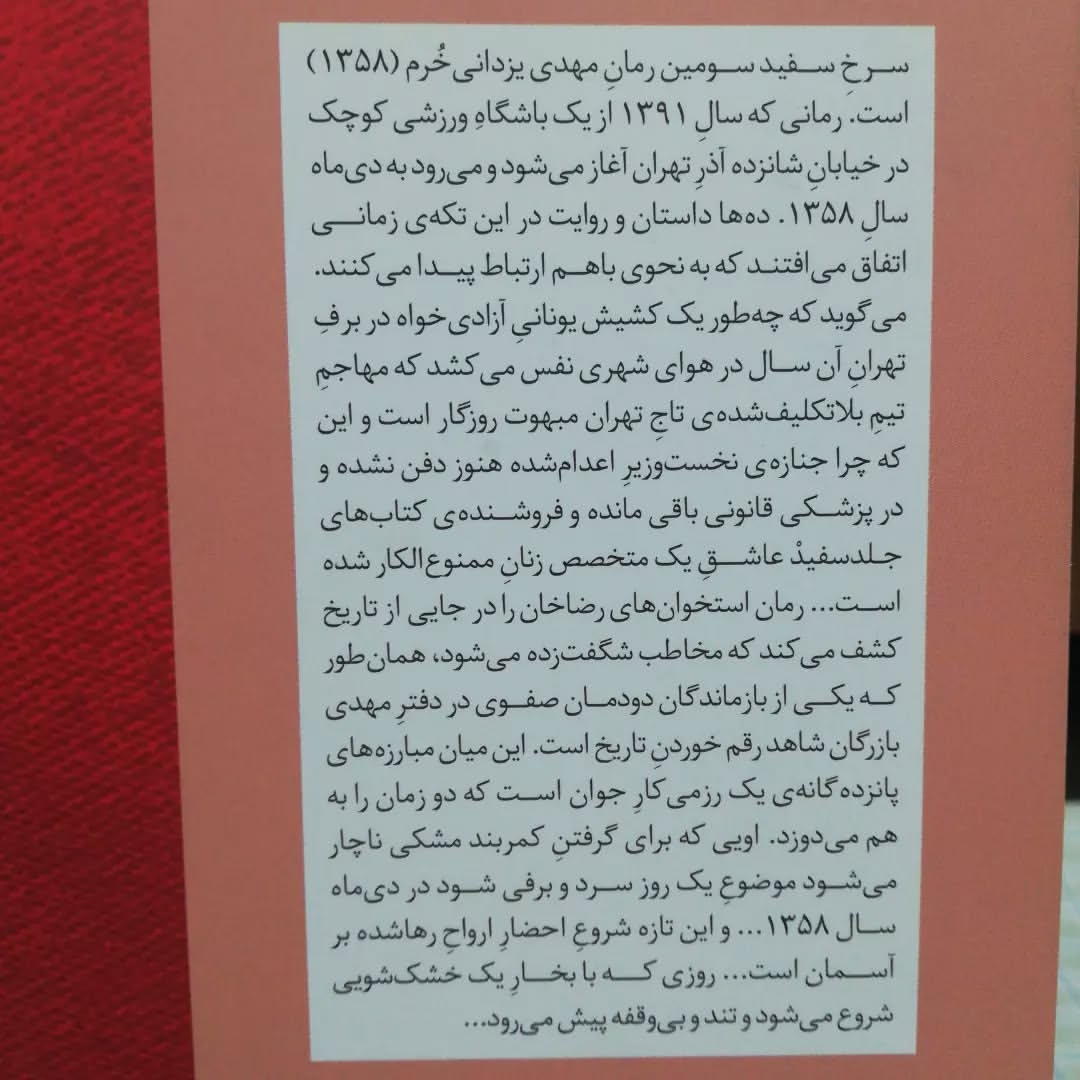 سرخِ سفید سومین رمانِ مهدی یزدانی‌خُرم (۱۳۵۸)
است. رمانی که سالِ ۱۳۹۱ از یک باشگاهِ ورزشی کوچک
در خیابانِ شانزده آذرِ تهران آغاز می‌شود و می‌رود به دی‌ماه
سالِ ۱۳۵۸. ده‌ها داستان و روایت در این تکه‌ی زمانی
اتفاق می‌افتند که به نحوی باهم ارتباط پیدا می‌کنند.
می‌گوید که چه‌طور یک کشیش یونانیِ آزادی‌خواه در برفِ
تهرانِ آن سال در هوای شهری نفس می‌کشد که مهاجمِ
تیمِ بلاتکلیف‌شده‌ی تاجِ تهران مبهوت روزگار است و این
که چرا جنازه‌ی نخست‌وزیرِ اعدام‌شده هنوز دفن نشده و
در پزشکی قانونی باقی مانده و فروشنده‌ی کتاب‌های
جلدسفیدْ عاشقِ یک متخصص زنانِ ممنوع‌الکار شده
است... رمان استخوان‌های رضاخان را در جایی از تاریخ
کشف می‌کند که مخاطب شگفت‌زده می‌شود، همان‌طور
که یکی از بازماندگان دودمان صفوی در دفترِ مهدی
بازرگان شاهد رقم خوردنِ تاریخ است. این میان مبارزه‌های
پانزده‌گانه‌ی یک رزمی‌کارِ جوان است که دو زمان را به
هم می‌دوزد. اویی که برای گرفتنِ کمربند مشکی ناچار
می‌شود موضوعِ یک روز سرد و برفی شود در دی‌ماه
سال ۱۳۵۸... و این تازه شروعِ احضارِ ارواحِ رهاشده بر
آسمان است... روزی که با بخارِ یک خشک‌شویی
شروع می‌شود و تند و بی‌وقفه پیش می‌رود...